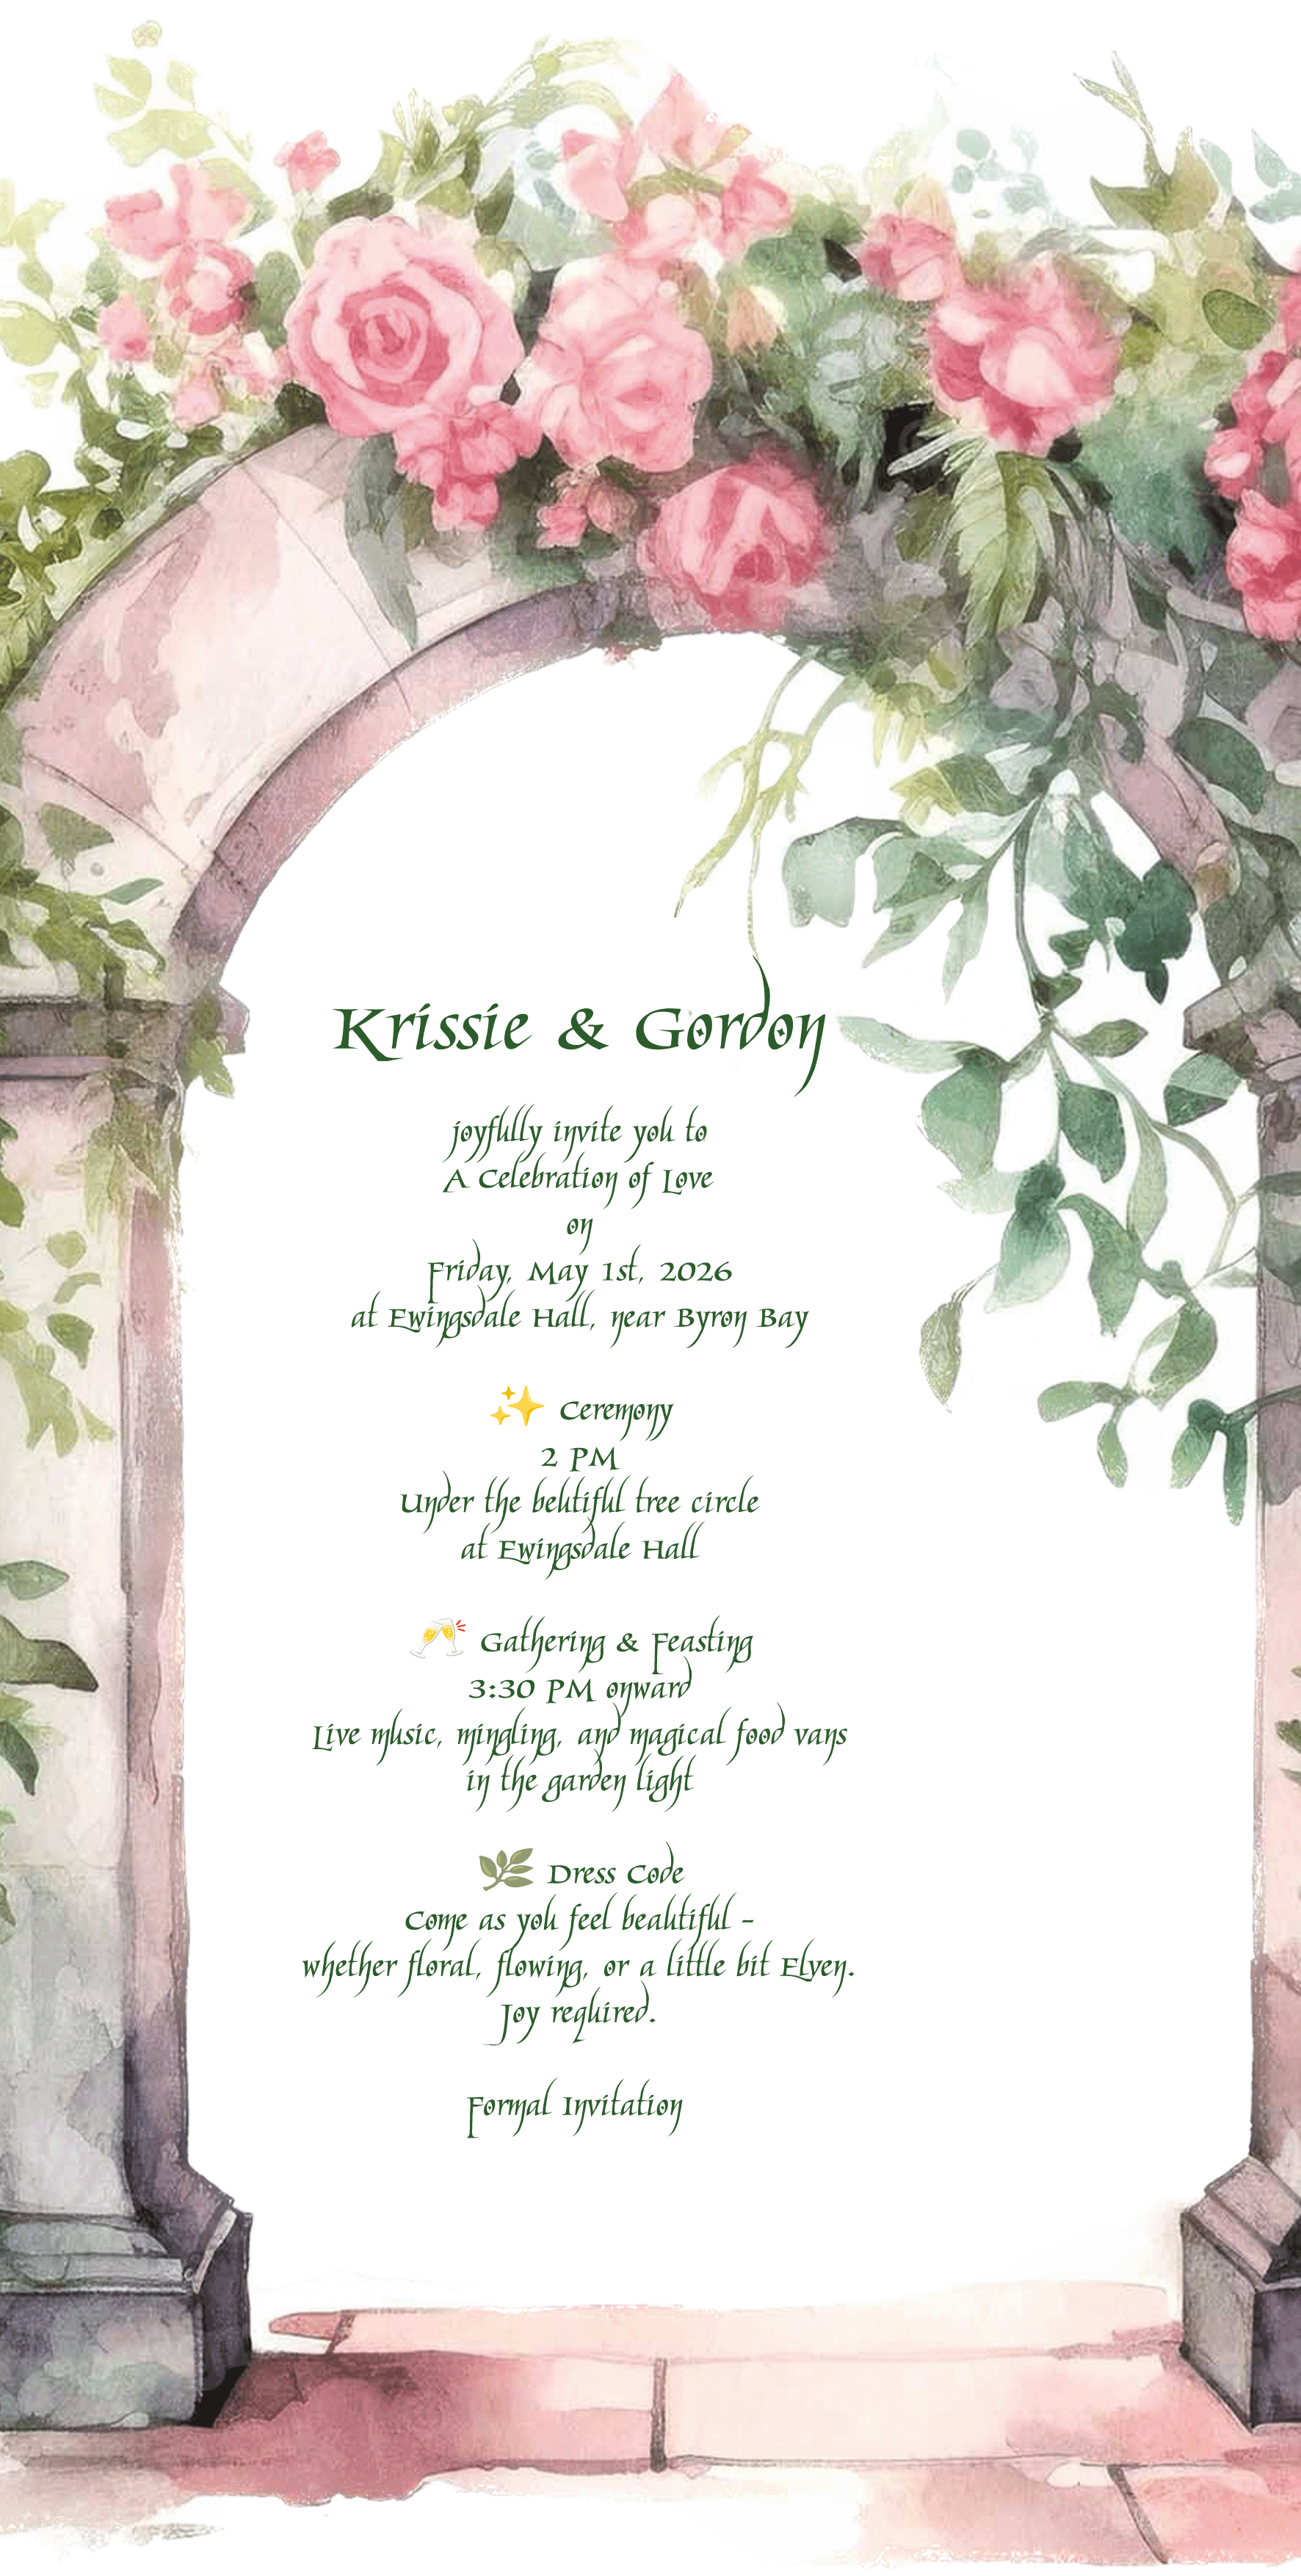 Krissie & Gordon
joyfully invite you to
A Celebration of Love
on
Friday, May 1st, 2026
at Ewingsdale Hall, near Byron Bay
✨ Ceremony
2 PM
Under the beutiful tree circle
at Ewingsdale Hall
🥂 Gathering & Feasting
3:30 PM onward
Live music, mingling, and magical food vans
in the garden light
🌿 Dress Code
Come as you feel beautiful –
whether floral, flowing, or a little bit Elven.
Joy required.
Formal Invitation